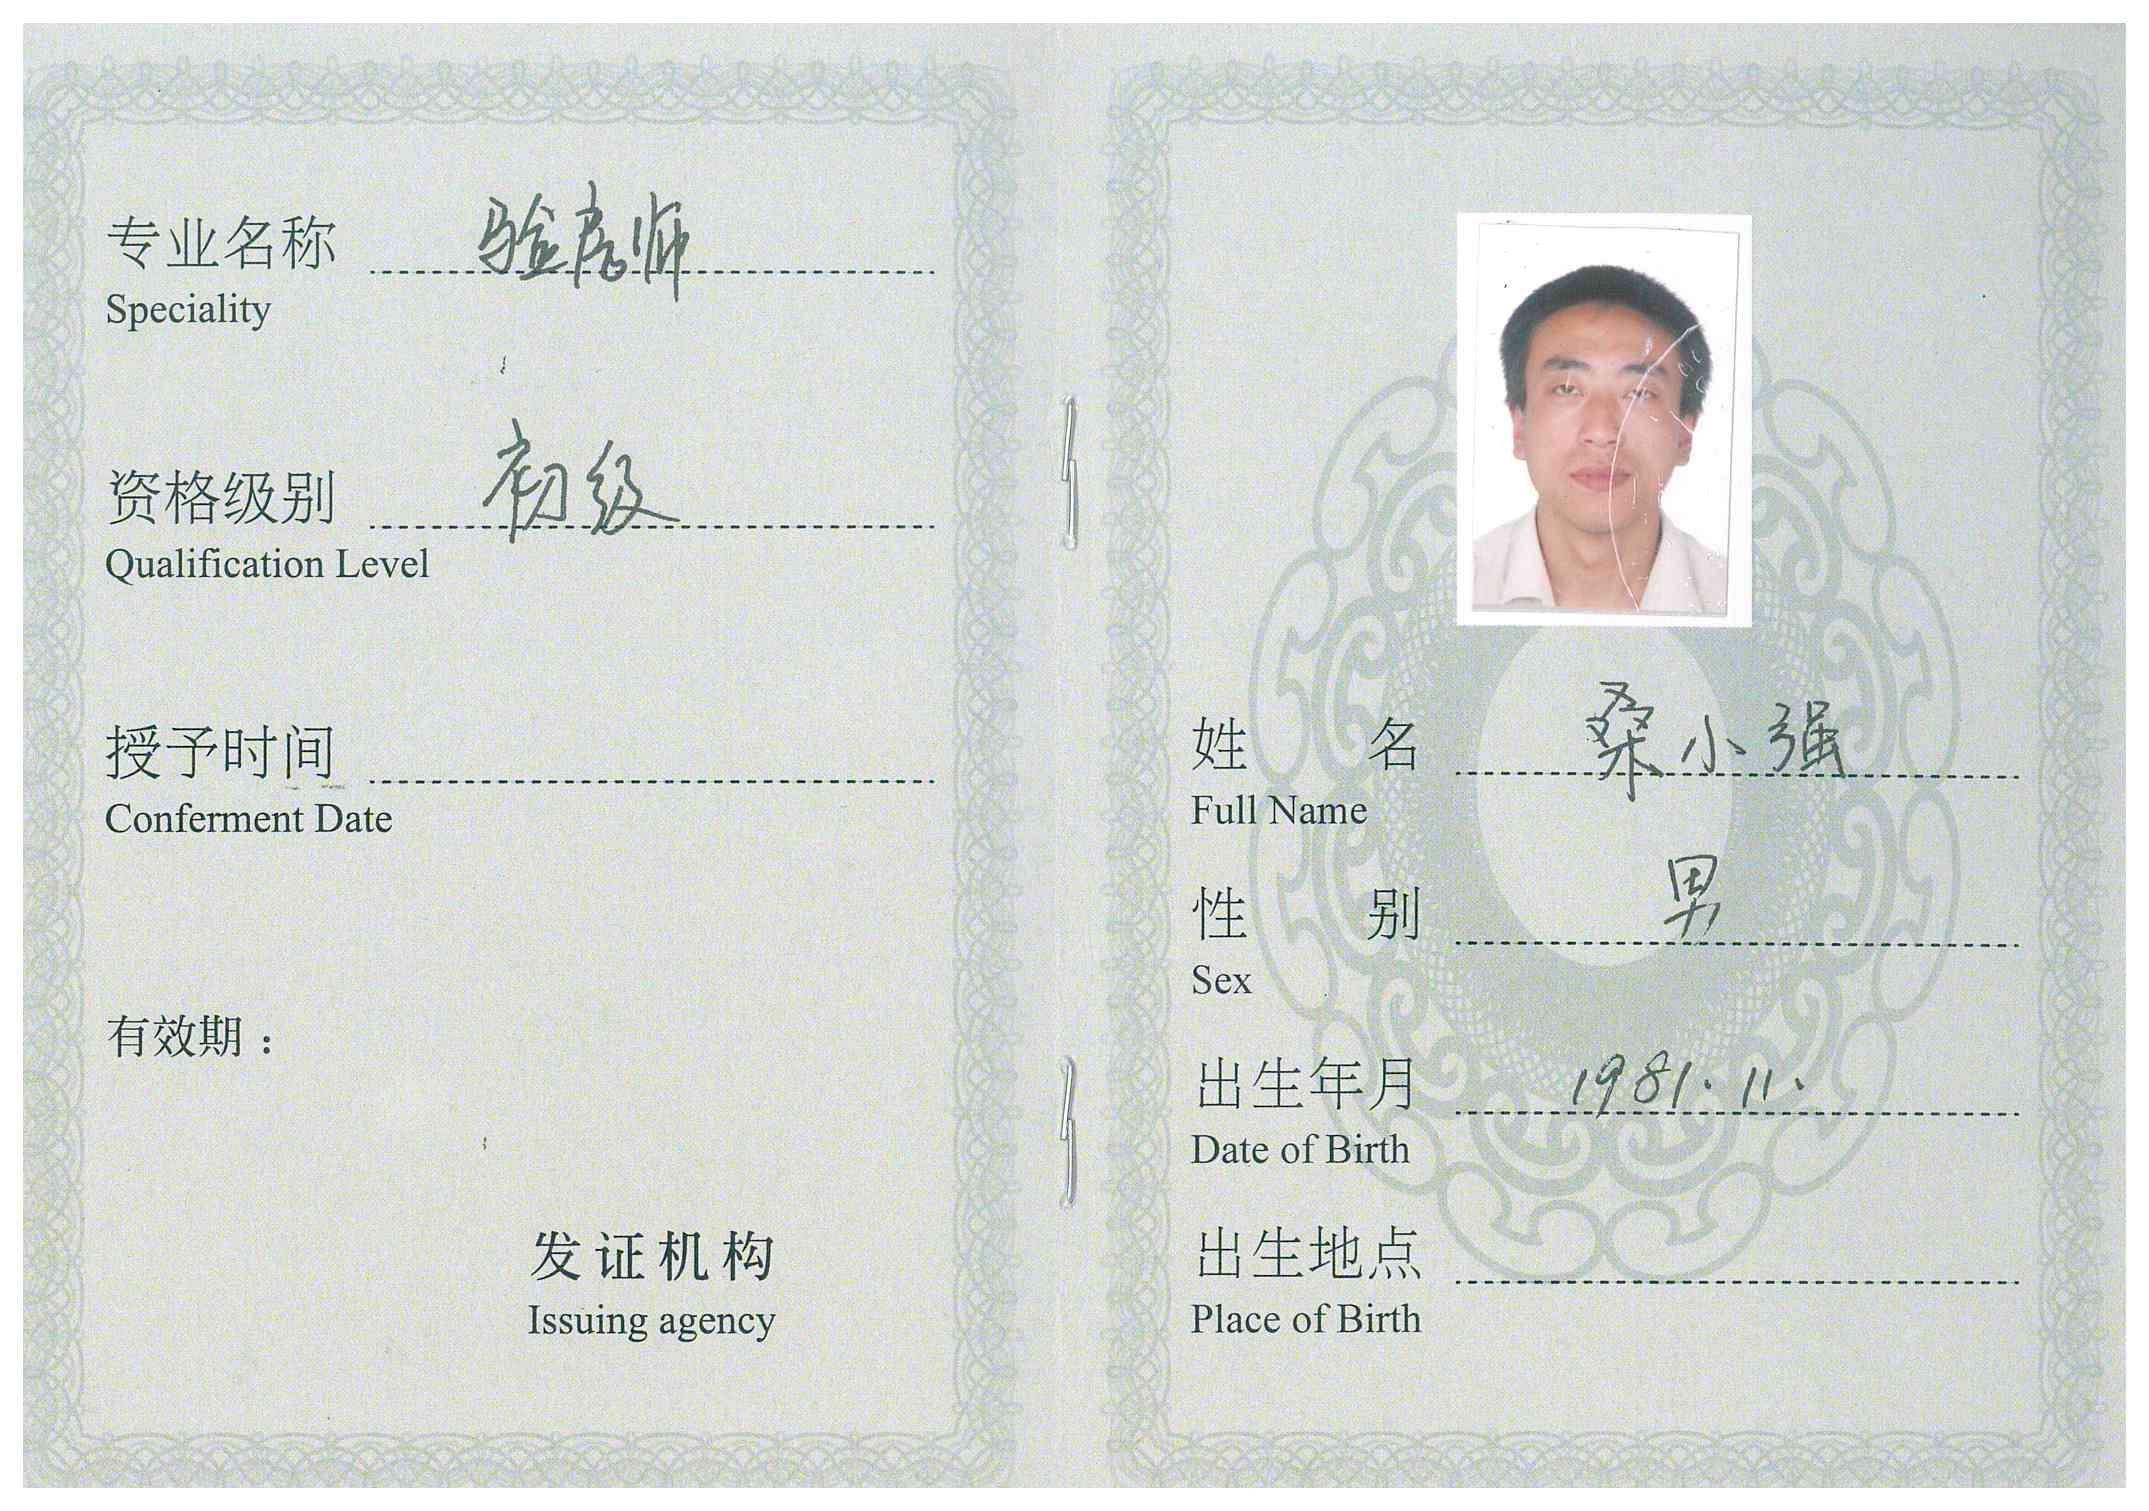 专业名称 验房师
Speciality
资格级别 初级
Qualification Level
授予时间
Conferment Date
有效期：
发证机构
Issuing agency
姓名 桑小强
Full Name
性别 男
Sex
出生年月 1981.11.
Date of Birth
出生地点
Place of Birth